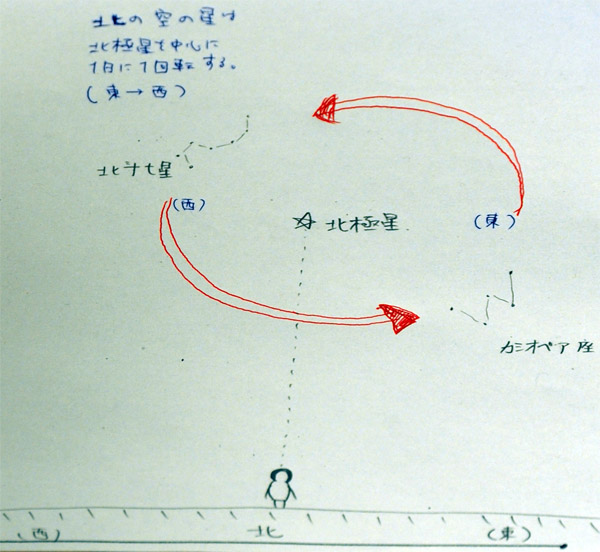 北の空の星は
北極星を中心に
1日に1回転する。
(東→西)
北斗七星
(西)
北極星
(東)
カシオペア座
(西)
北
(東)